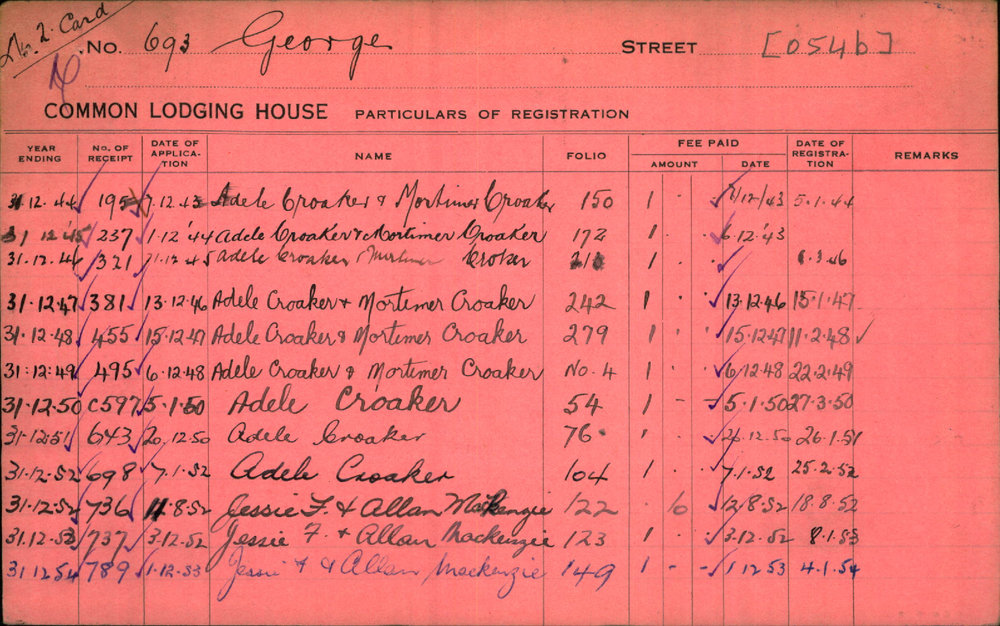 No. 2. Card
No. 693 George STREET [054b]
COMMON LODGING HOUSE PARTICULARS OF REGISTRATION
YEAR ENDING NO. OF RECEIPT DATE OF APPLICA-TION NAME FOLIO FEE PAID AMOUNT DATE DATE OF REGISTRA-TION REMARKS
31.12.44 195 7.12.43 Adele Croaker & Mortimer Croaker 150 1 . . 7/12/43 5.1.44
31 12 '45 237 1.12 '44 Adele Croaker & Mortimer Croaker 172 1 . 6.12.'43
31.12.46 321 11.12.45 Adele Croaker Mortimer Croker 211 1 . 1.3.46
31.12.47 381 13.12.46 Adele Croaker & Mortimer Croaker 242 1 . . 13.12.46 15.1.47
31.12.48 455 15.12.47 Adele Croaker & Mortimer Croaker 279 1 . . 15.12.47 11.2.48 ✓
31.12.49 495 6.12.48 Adele Croaker & Mortimer Croaker No. 4 1 . . 6.12.48 22.2.49
31.12.50 C597 5.1.50 Adele Croaker 54 1 - - 5.1.50 27.3.50
31.12.51 643 20.12.50 Adele Croaker 76 1 . . 20.12.50 26.1.51
31.12.52 698 7.1.52 Adele Croaker 104 1 . . 7.1.52 25.2.52
31.12.52 736 11.8.52 Jessie F. & Allan Mackenzie 122 . 10 12.8.52 18.8.52
31.12.53 737 3.12.52 Jessie F. & Allan Mackenzie 123 1 . . 3.12.52 8.1.53
31 12 54 789 1.12.53 Jessie F & Allan Mackenzie 149 1 - - 1 12 53 4.1.54